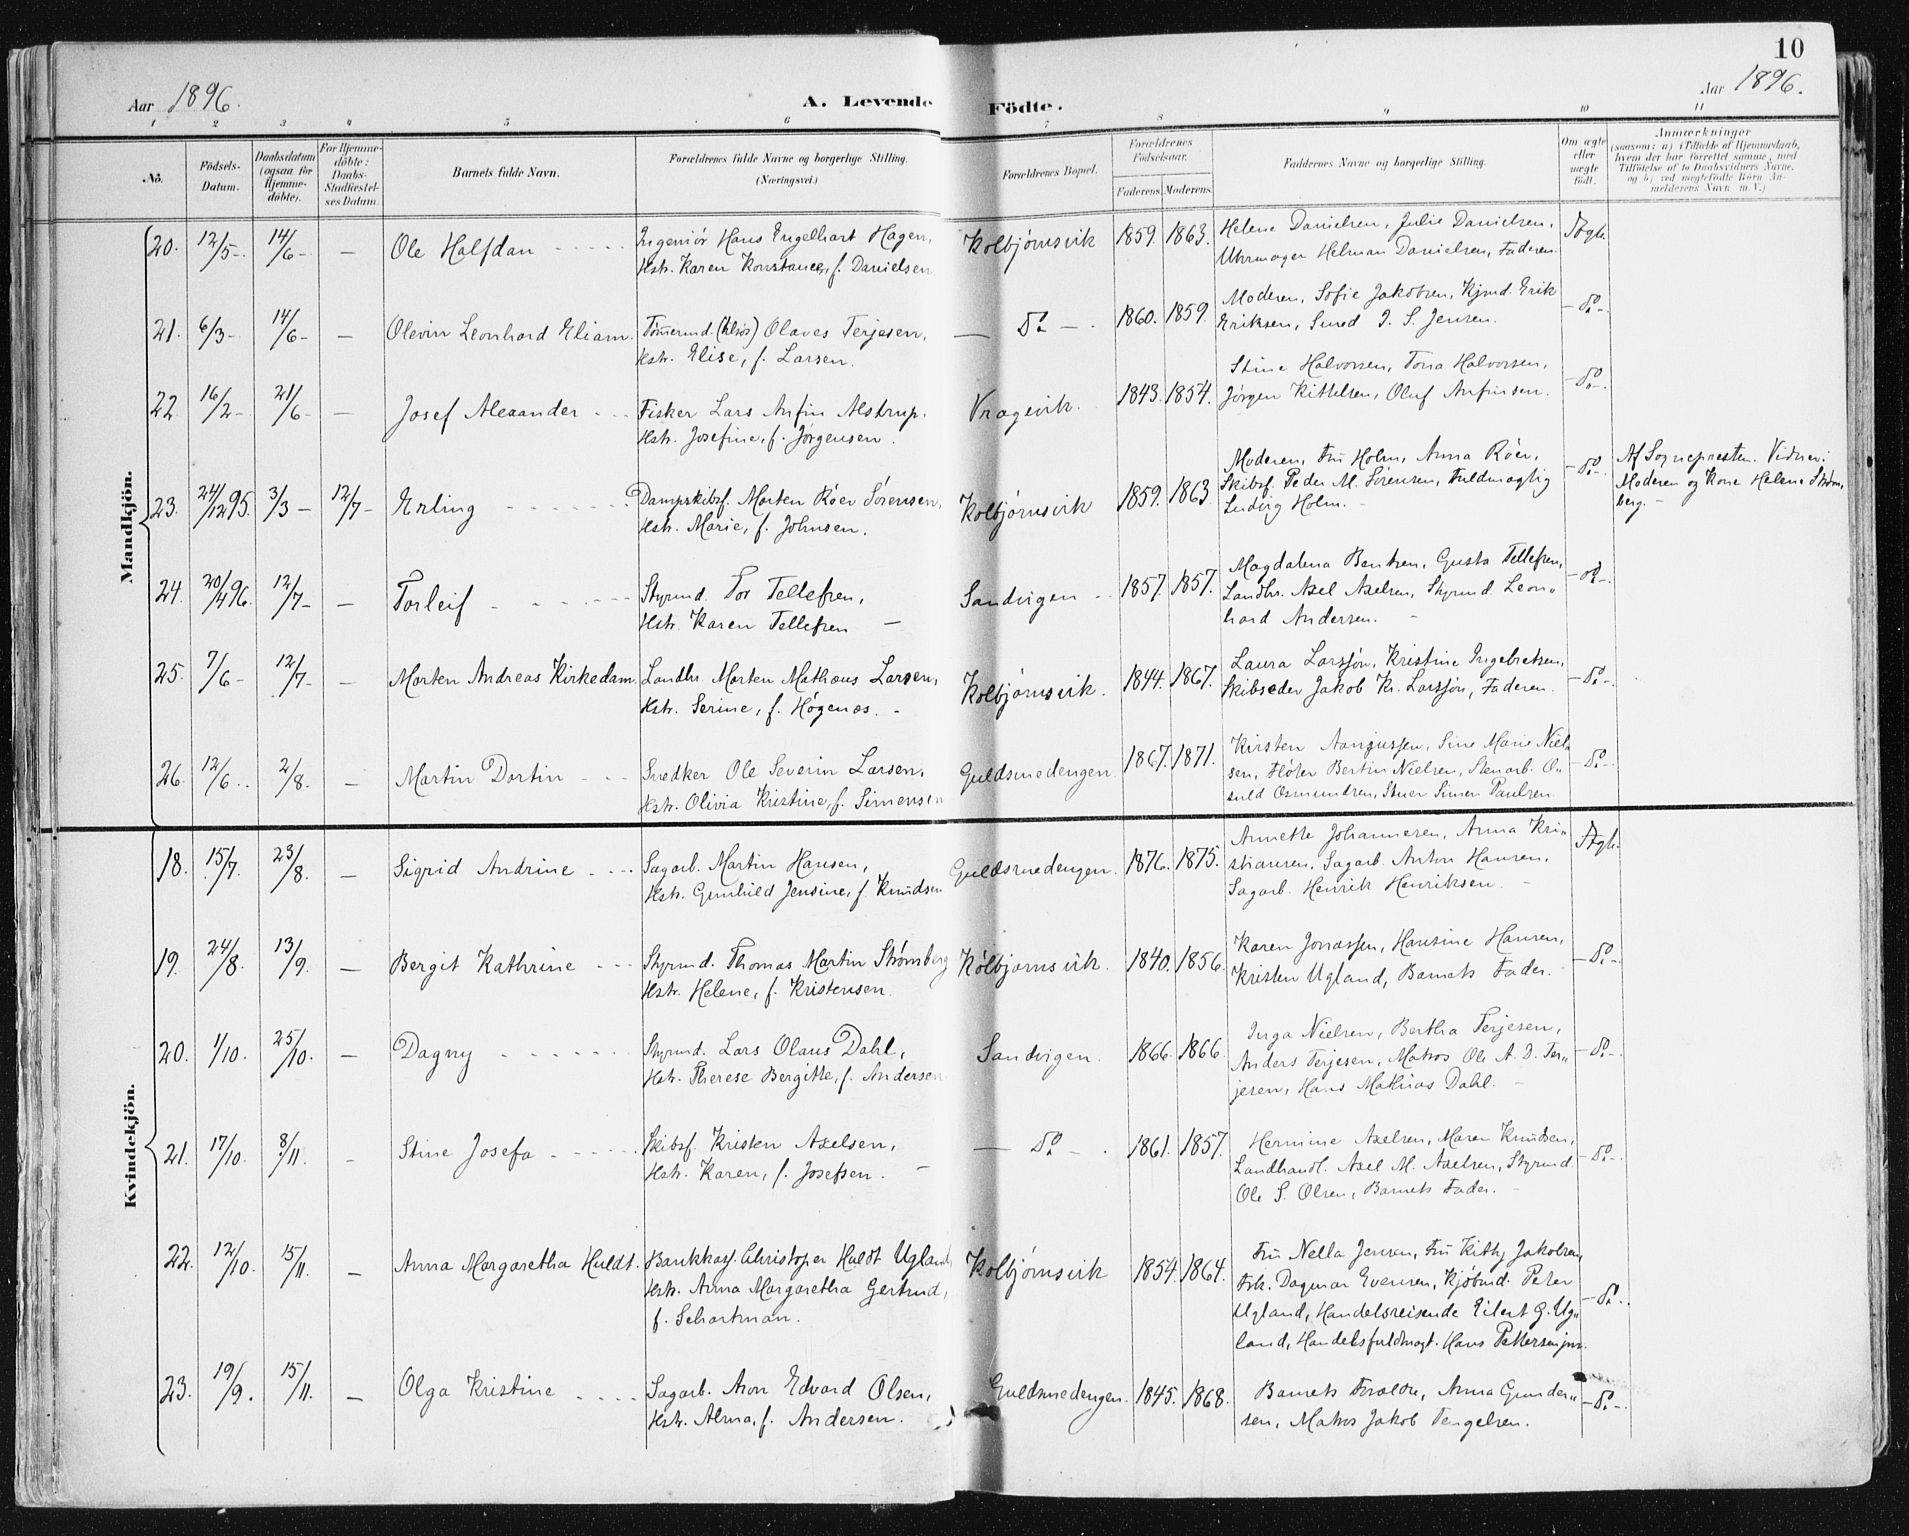 10
Aar 1896.
A. Levende Födte.
Aar 1896.
1 2 3 4 5 6 7 8 9 10 11
No.
Födsels-Datum.
Daabsdatum (ogsaa for Hjemmedöbte).
For Hjemmedöbte: Daabs-Stadfæstelses Datum.
Barnets fulde Navn.
Forældrenes fulde Navne og borgerlige Stilling.
(Næringsvei.)
Forældrenes Bopæl.
Forældrenes Födselsaar.
Faderens. Moderens.
Faddernes Navne og borgerlige Stilling.
Om ægte eller uægte födt.
Anmærkninger
(saasom: a) i Tilfælde af Hjemmedaab, hvem der har forrettet samme, med Tilföielse af to Daabsvidners Navne, og b) ved uægtefödte Börn Anmelderens Navn m. V.)
Mandkjön.
20. 12/5- 14/6- — Ole Halfdan Ingeniör Hans Engelhart Hagen, Kolbjørnsvik 1859. 1863. Helene Danielsen, Julie Danielsen, Ægte.
Hstr. Karen Konstance, f. Danielsen Uhrmager Helman Danielsen, Faderen.
21. 6/3- 14/6- — Olevin Leonhard Eliam. Tömmermd. Olaves Terjesen, — Do — . 1860. 1859. Moderen, Sofie Jakobsen, Kjmd. Erik — Do -.
Hstr. Elise, f. Larsen. Eriksen, Smed J. S. Jensen.
22 16/2- 21/6- — Josef Alexander Fisker Lars Anfin Alstrup, Vragevik. 1843. 1854. Stine Halvorsen, Tona Halvorsen, — Do -.
Hstr. Josefine, f. Jørgensen. Jørgen Kittelsen, Oluf Anfinsen.
23. 24/12 95. 3/3 — 12/7- Erling Dampskibsf. Morten Röer Sörensen, Kolbjørnsvik 1859. 1863 Moderen, Fru Holm, Anna Röer, — Do -. Af Sognepresten. Vidner:
Hstr. Marie, f. Johnsen. Skibsf. Peder M. Sörensen, Fuldmægtig Moderen og Kone Helene Strøm-
Ludvig Holm. — berg. —
24. 20/4 96. 12/7- — Torleif Styrmd. Tor Tellefsen, Sandvigen 1857. 1857. Magdalena Bentzen, Gusta Tellefsen, — Do -.
Hstr. Karen Tellefsen — Landhr. Axel Axelsen, Styrmd. Leon„
hard Andersen. —
25. 7/6- 12/7- — Morten Andreas Kirkedam. Landhr. Morten Mathæus Larsen, Kolbjørnsvik. 1844. 1867. Laura Larssön, Kristine Ingebretsen, — Do -.
Hstr. Serine, f. Høgenæs. - Skibsreder Jakob Kr. Larssön, Faderen.
26. 12/6.. 2/8. — Martin Dortin Snedker Ole Severin Larsen, Guldsmedengen. 1867. 1871. Kirsten Aanjussen, Sine Marie Niel- — Do -.
Hstr. Olivia Kristine, f. Simensen sen, Fløter Bertin Nielsen, Stenarb. O„
suld Osmundsen, Stuer Simen Paulsen
Kvindekjön.
18. 15/7. 23/8. — Sigrid Andrine Sagarb. Martin Hansen, Guldsmedengen. 1876. 1875. Annette Johannesen, Anna Kri„ Ægte.
Hstr. Gunhild Jensine, f. Knudsen stiansen, Sagarb. Anton Hansen,
Sagarb. Henrik Henriksen. —
19. 24/8. 13/9. — Bergit Kathrine Styrmd. Thomas Martin Strømberg Kolbjørnsvik. 1840. 1856. Karen Jonassen, Hansine Hansen, — Do -.
Hstr. Helene, f. Kristensen. Kristen Ugland, Barnets Fader.
20. 1/10. 25/10. — Dagny Styrmd. Lars Olaus Dahl, Sandvigen. 1866. 1866. Inga Nielsen, Bertha Terjesen, — Do -.
Hstr. Therese Bergitte, f. Andersen Anders Terjesen, Matros Ole A. D. Ter„
jesen, Hans Mathias Dahl. —
21. 17/10. 8/11. — Stine Josefa Skibsf. Kristen Axelsen, — Do — . 1861. 1857. Hermine Axelsen, Maren Knudsen, — Do -.
Hstr. Karen, f. Josefsen. — Landhandl. Axel M. Axelsen, Styrmd.
Ole S. Olsen, Barnets Fader. —
22. 12/10. 15/11. — Anna Margaretha Huldt. Bankkass. Christopher Huldt Ugland, Kolbjørnsvik 1854. 1864. Fru Nella Jensen, Fru Kithy Jakobsen, — Do -.
Hstr. Anna Margaretha Gertrud, Frk. Dagmar Evensen, Kjöbmd. Peter
f. Schartman. Ugland, Handelsreisende Eilert G. Ug„
land, Handelsfuldmægt. Hans Pettersen jun.
23. 19/9. 15/11. — Olga Kristine Sagarb. Aron Edvard Olsen, Guldsmedengen. 1845. 1868. Barnets Forældre, Anna Gunder„ — Do -.
Hstr. Alma, f. Andersen. sen, Matros Jakob Tengelsen.